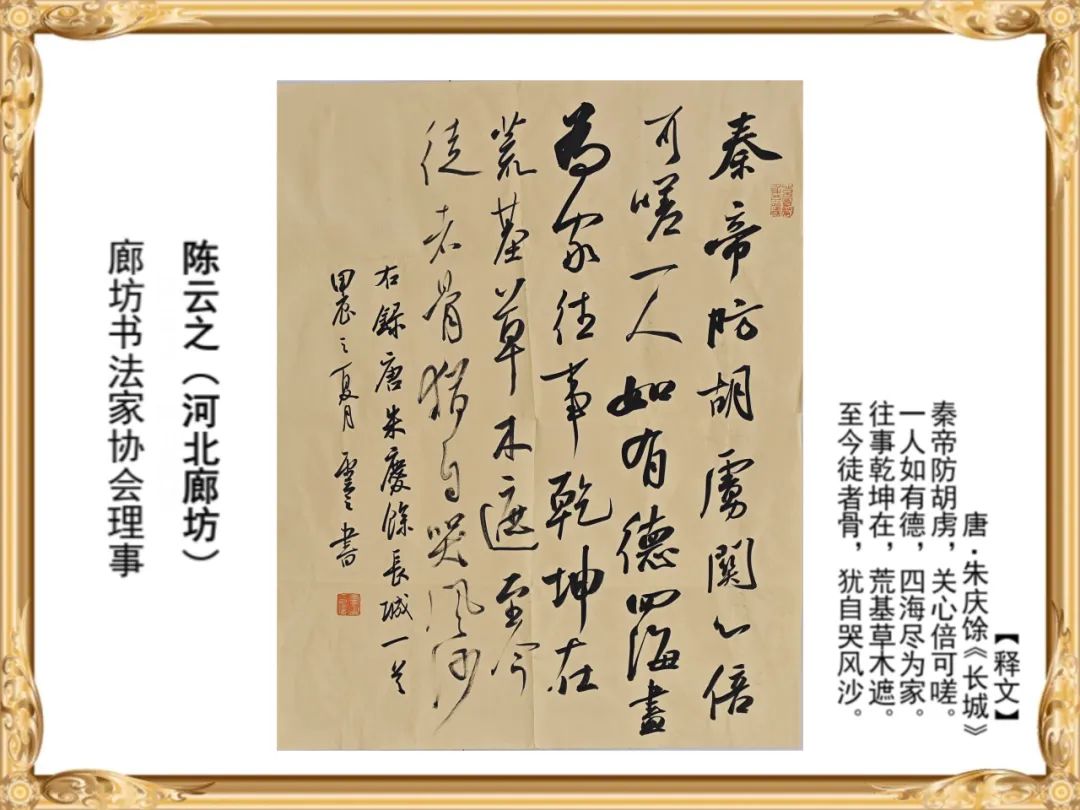 【释文】
唐·朱庆馀《长城》
秦帝防胡虏，关心倍可嗟。
一人如有德，四海尽为家。
往事乾坤在，荒基草木遮。
至今徒者骨，犹自哭风沙。
秦帝防胡虜關心倍
可嗟一人如有德四海盡
為家往事乾坤在
荒基草木遮至今
徒者骨猶自哭風沙
右錄唐朱慶餘長城一首
甲辰之夏月 雲之書
陈云之（河北廊坊）
廊坊书法家协会理事